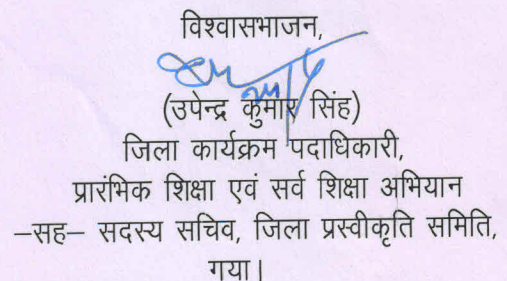 विश्वासभाजन,
(उपेन्द्र कुमार सिंह)
जिला कार्यक्रम पदाधिकारी,
प्रारंभिक शिक्षा एवं सर्व शिक्षा अभियान
–सह– सदस्य सचिव, जिला प्रस्वीकृति समिति,
गया।